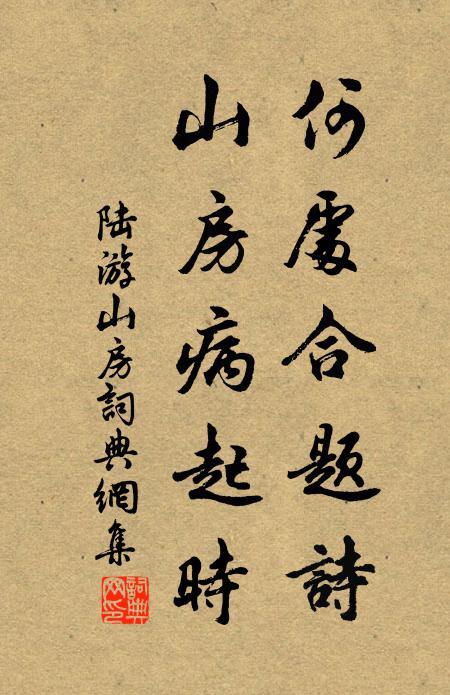 何處合題詩
山房病起時
陆游山房詞典網集
詞典网印